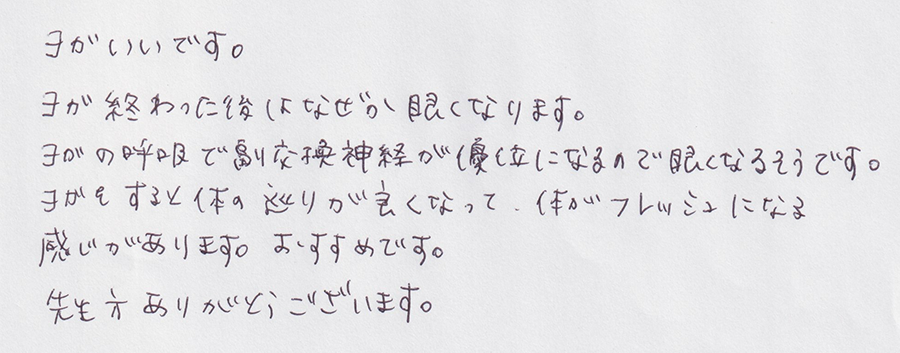 ヨガいいです。
ヨガ終わった後はなぜか眠くなります。
ヨガの呼吸で副交換神経が優位になるので眠くなるそうです。
ヨガをすると体の巡りが良くなって、体がフレッシュになる
感じがあります。おすすめです。
先生方ありがとうございます。